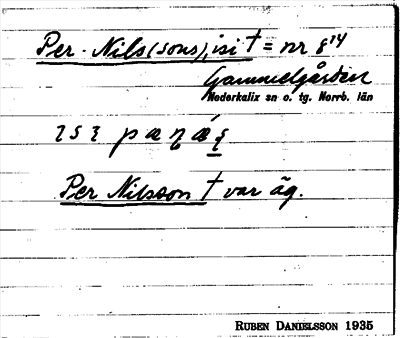 Per-Nils(sons), isi † = nr 8¹⁴
Gammelgården
Nederkalix sn o. tg. Norrb. län
Per Nilsson † var äg.
RUBEN DANIELSSON 1935